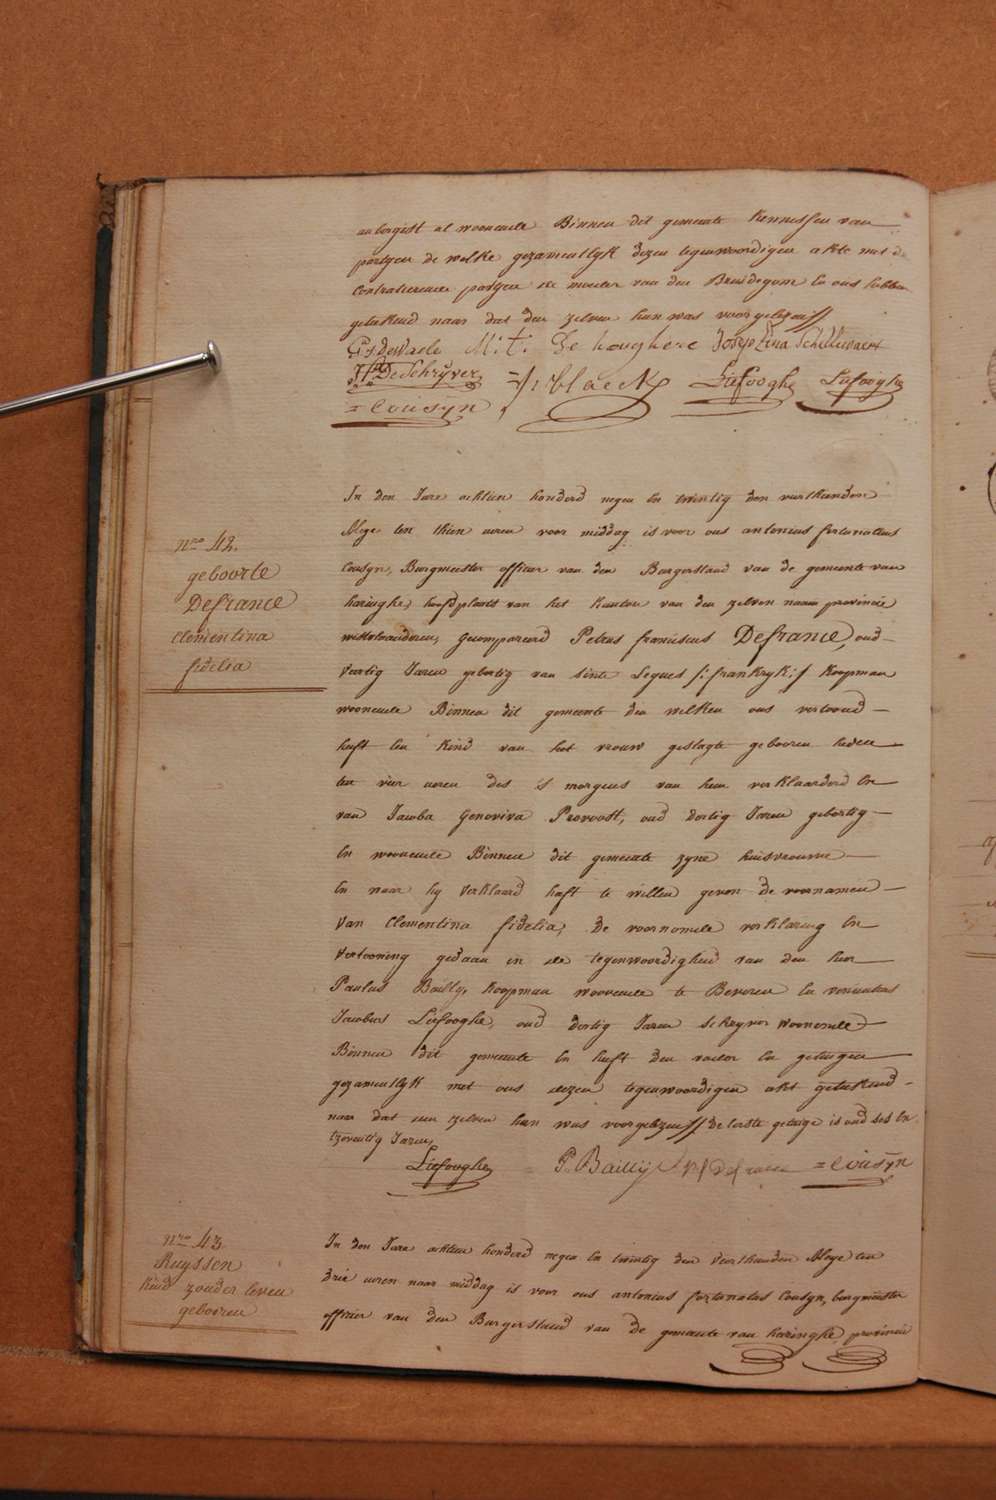 aubergist al woonende Binnen dit gemeente kennissen van
partyen de welke gezamentlyk dezen tegenwoordigen akte met de
contraterende partyen de moeder van den Bruidegom en ons hebben
geteekend naar dat den zelven hun was voorgelezen//
De koughere Josephina Schellewaert
DeSchryver Liefooghe Lafooghe
=Cousyn
nro 42.
geboorte
Defrance
Clementina
fidelia
In den Jare achtien honderd negen en twintig den vierthienden
Meye ten thien uren voor middag is voor ons antonius fortunatus
Cousyn, Burgmeester officier van den Burgerstand van de gemeente van
haringhe, hoofdplaets van het kanton van den zelven naam provincie
westvlaanderen, gecompareerd Petrus franciscus Defrance, oud
veertig Jaren geboortig van sinte Segues /:frankryk:/ koopman
woonende Binnen dit gemeente den welken ons vertoond
heeft een kind van het vrouw geslagte gebooren heden
ten vier uren des 's morgens van hem verklaarderd en
van Jacoba Genoviva Provoost, oud dertig Jaren geboortig
en woonende Binnen dit gemeente zyne huisvrouwe
en naar hy verklaard heeft te willen geven de voornamen
van Clementina fidelia, De voornomde verklaring en
vertooning gedaan in de tegenwoordigheid van den heer
Paulus Bailly, koopman woonende te Beveren en
Jacobus Liefooghe, oud dertig Jaren schryver woonende
Binnen dit gemeente en heeft den vader en getuigen
gezamentlyk met ons dezen tegenwoordigen akt geteekend
naar dat den zelven hun was voorgelezen// de eerste getuige is oud ses en
tzeventig Jaren,
Liefooghe P. Bailly Defrance =Cousyn
nro 43.
Ruyssen
kind zonder leven
gebooren
In den Jare achtien honderd negen en twintig den vierthienden Meye ten
drie uren naar middag is voor ons antonius fortunatus Cousyn, burgmeester
officier van den Burgerstand van de gemeente van haringhe, provincie